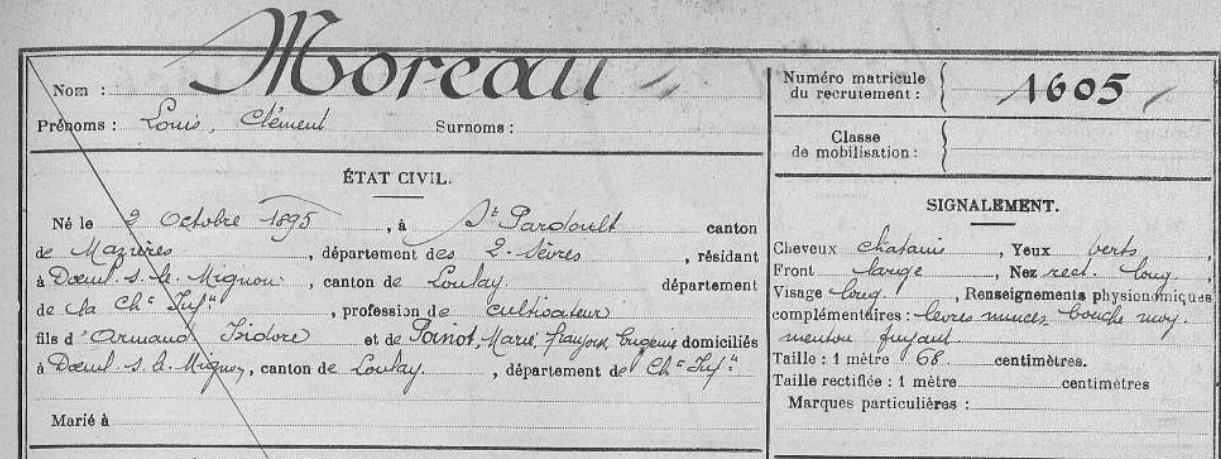 Nom : Moreau
Prénoms : Louis, Clément Surnoms :
ÉTAT CIVIL.
Né le 2 Octobre 1895, à St Pardoult canton
de Mazières, département des 2-Sèvres, résidant
à Dœuil s. le Mignon, canton de Loulay département
de la Chte Infre, profession de cultivateur
fils d'Armand Isidore et de Poinot, Marie, Françoise, Eugénie domiciliés
à Dœuil s. le Mignon, canton de Loulay, département de Chte Infre
Marié à
Numéro matricule
du recrutement : 1605
Classe
de mobilisation :
SIGNALEMENT.
Cheveux chatains, Yeux verts,
Front large, Nez rect. long,
Visage long, Renseignements physionomiques
complémentaires : lèvres minces bouche moy.
menton fuyant
Taille : 1 mètre 68 centimètres.
Taille rectifiée : 1 mètre centimètres
Marques particulières :